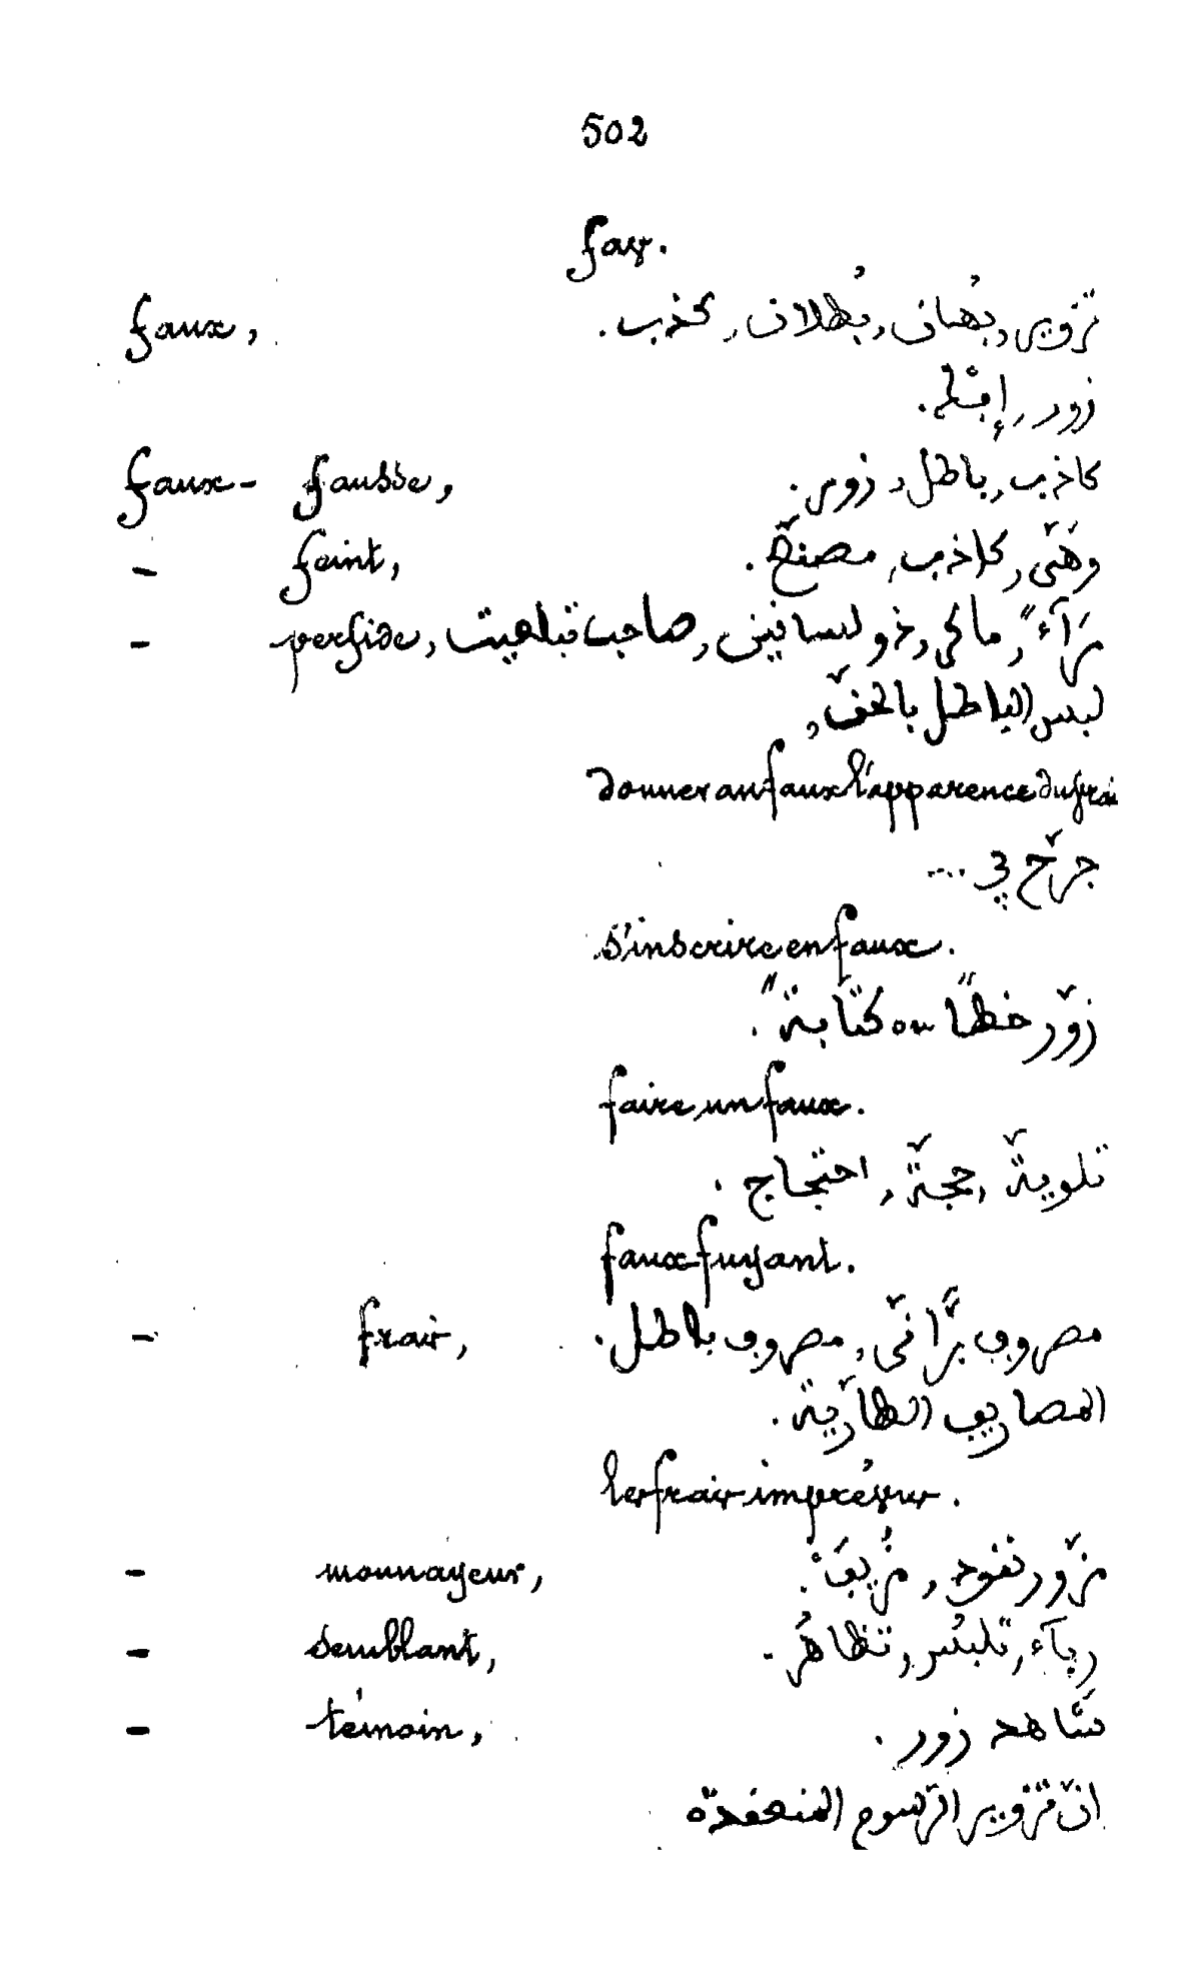 502
fav.
faux, تزوير, بُهتان, بُطلان, كذب.
زور, إفك.
faux - fausse, كاذب, باطل, زور.
- feint, وَهَمّى, كاذب, مصنّع.
- perfide, مرَآء, ماكر, ذو لسانين, صاحب
لبس الباطل بالحقّ,
donner au faux l'apparence du vrai
جرّح في ....
s'inscrire en faux.
زوّر خطّاً ou كتابةً.
faire un faux.
تلويّة, حجّة, احتجاج.
faux-fuyant.
- frais, مصروف برّانّى, مصروف باطل.
المصاريف الطارّية.
les frais imprévus.
- monnayeur, مزوّر نقود, مُزيّفْ.
- semblant, ريآء, تلبُّس, تظاهُر.
- témoin, شاهد زور.
انّ تزوير الرّسوم المنعقدة